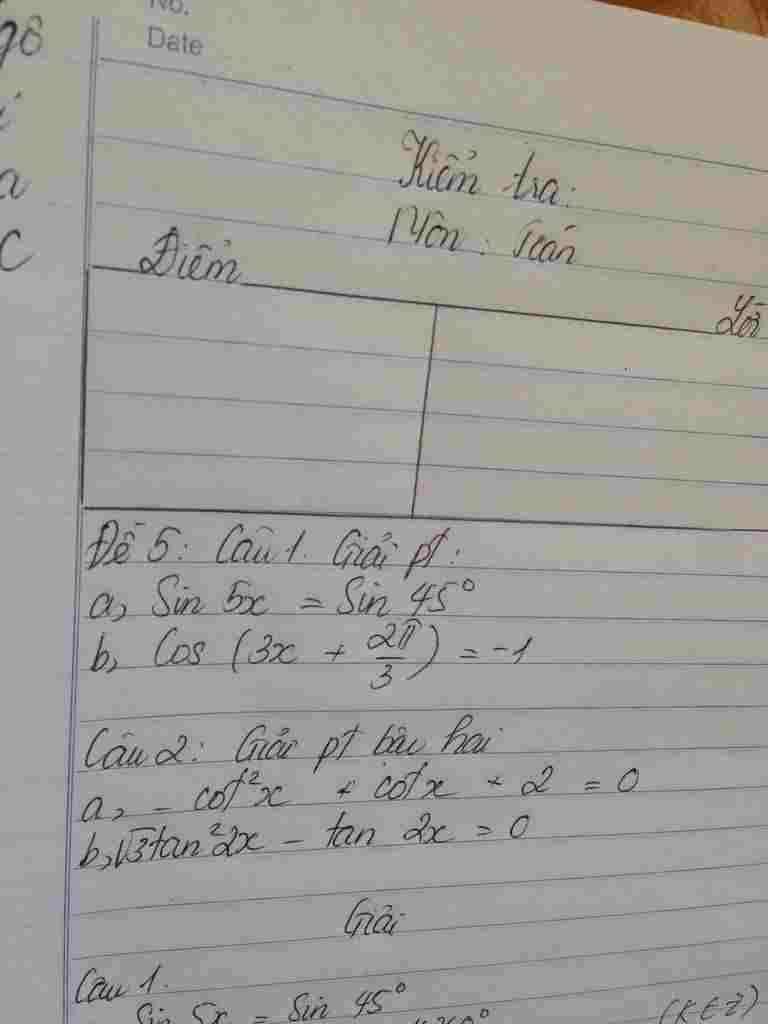 No.
Date
Kiểm tra:
Môn: Toán
Điểm
Đề 5: Câu 1. Giải pt:
a, Sin 5x = Sin 45°
b, Cos (3x + 2π/3) = -1
Câu 2: Giải pt bậc hai
a, - cot²x + cotx + 2 = 0
b, √3tan²2x - tan 2x = 0
Giải
Câu 1.
Sin 5x = Sin 45°
(K∈Z)